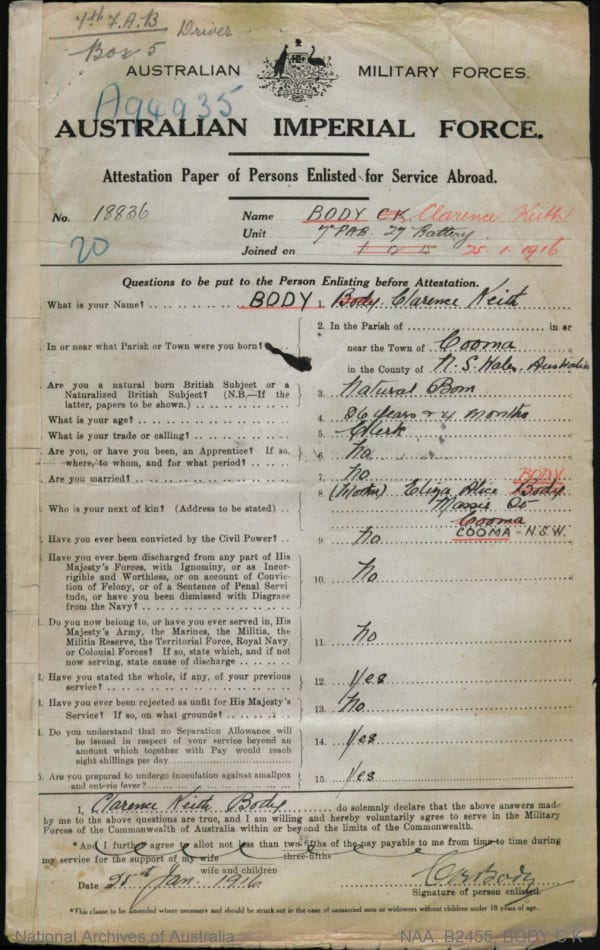 7th F.A.B
Driver
Box 5
AUSTRALIAN MILITARY FORCES.
A94935
AUSTRALIAN IMPERIAL FORCE.
Attestation Paper of Persons Enlisted for Service Abroad.
No. 18836 Name BODY CK Clarence Keith
20 Unit 7 FAB. 27 Battery
Joined on 25.1.1916
Questions to be put to the Person Enlisting before Attestation.
. What is your Name? BODY 1. Body Clarence Keith
In or near what Parish or Town were you born? 2. In the Parish of in or
near the Town of Cooma
in the County of N. S. Wales, Australia
. Are you a natural born British Subject or a
Naturalized British Subject? (N.B.—If the
latter, papers to be shown.) 3. Natural Born
. What is your age? 4. 26 years & 4 months
. What is your trade or calling? 5. Clerk
. Are you, or have you been, an Apprentice? If so,
where, to whom, and for what period? 6. No
. Are you married? 7. No
BODY
. Who is your next of kin? (Address to be stated) 8. (Mother) Eliza Alice Body
Massie St
Cooma
COOMA - N.S.W.
. Have you ever been convicted by the Civil Power? 9. No
. Have you ever been discharged from any part of His
Majesty's Forces, with Ignominy, or as Incor-
rigible and Worthless, or on account of Convic-
tion of Felony, or of a Sentence of Penal Servi
tude, or have you been dismissed with Disgrace
from the Navy? 10. No
. Do you now belong to, or have you ever served in, His
Majesty's Army, the Marines, the Militia, the
Militia Reserve, the Territorial Force, Royal Navy,
or Colonial Forces? If so, state which, and if not
now serving, state cause of discharge 11. No
2. Have you stated the whole, if any, of your previous
service? 12. Yes
3. Have you ever been rejected as unfit for His Majesty's
Service? If so, on what grounds? 13. No
4. Do you understand that no Separation Allowance will
be issued in respect of your service beyond an
amount which together with Pay would reach
eight shillings per day 14. Yes
5. Are you prepared to undergo inoculation against smallpox
and enteric fever? 15. Yes
I, Clarence Keith Body do solemnly declare that the above answers made
by me to the above questions are true, and I am willing and hereby voluntarily agree to serve in the Military
Forces of the Commonwealth of Australia within or beyond the limits of the Commonwealth.
*And I further agree to allot not less than two-fifths of the pay payable to me from time to time during
three-fifths
my service for the support of my wife
wife and children
Date 25th Jan 1916 C K Body
Signature of person enlisted.
*This clause to be amended where necessary and should be struck out in the case of unmarried men or widowers without children under 18 years of age.
National Archives of Australia NAA: B2455, BODY C K